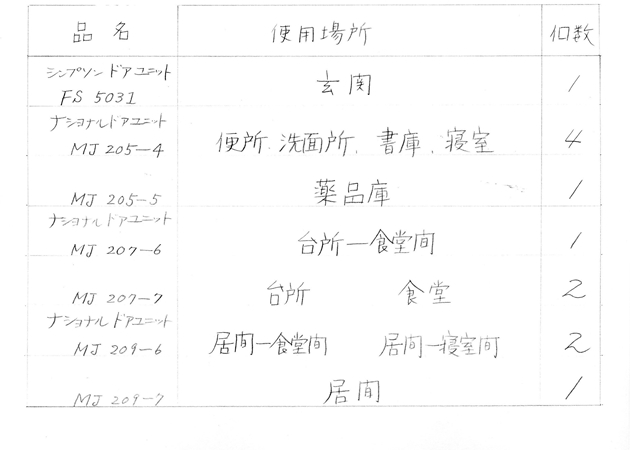 品名 使用場所 個数
シンプソンドアユニット
FS 5031 玄関 1
ナショナルドアユニット
MJ 205-4 便所、洗面所、書庫、寝室 4
MJ 205-5 薬品庫 1
ナショナルドアユニット
MJ 207-6 台所—食堂間 1
MJ 207-7 台所 食堂 2
ナショナルドアユニット
MJ 209-6 居間—食堂間 居間—寝室間 2
MJ 209-7 居間 1